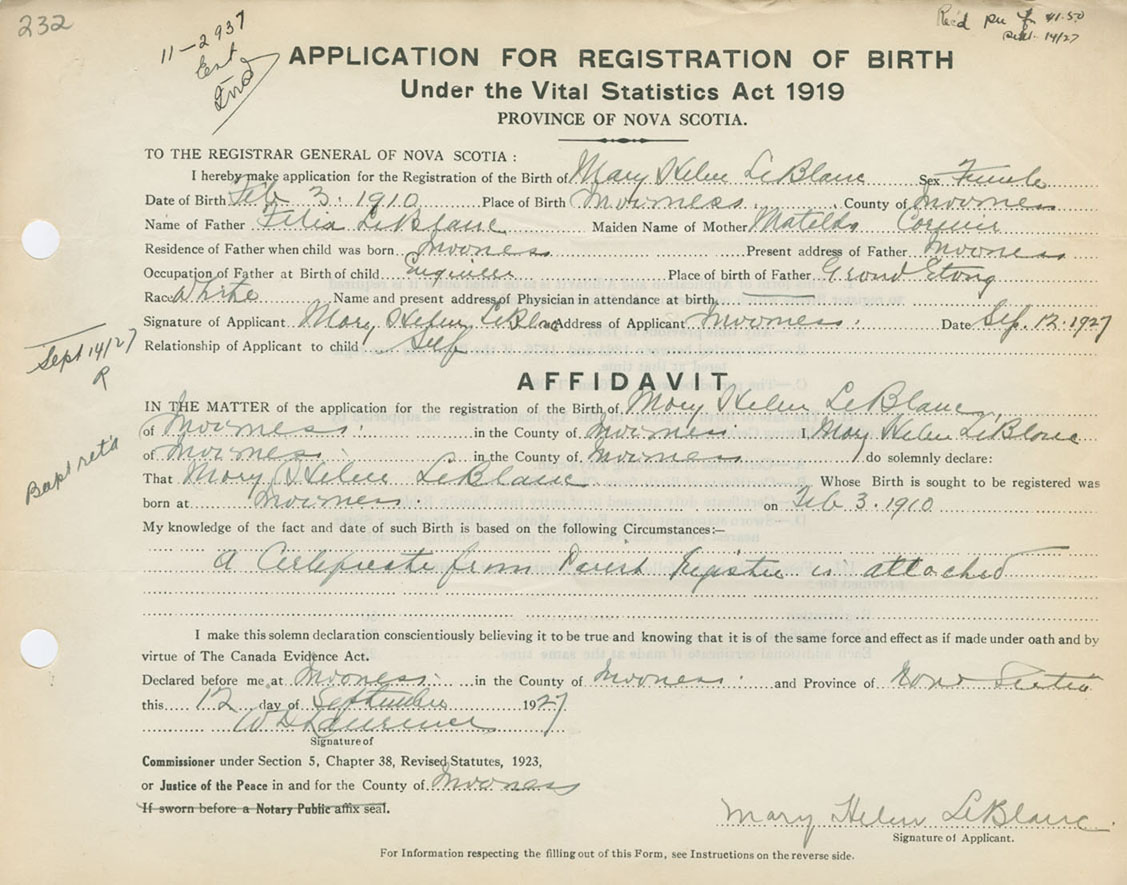 232
11-2937
Ent
Ind
Rec'd pu $1.50
Sept. 14/27
APPLICATION FOR REGISTRATION OF BIRTH
Under the Vital Statistics Act 1919
PROVINCE OF NOVA SCOTIA.
TO THE REGISTRAR GENERAL OF NOVA SCOTIA :
I hereby make application for the Registration of the Birth of Mary Helen LeBlanc Sex Female
Date of Birth Feb 3. 1910 Place of Birth Inverness County of Inverness
Name of Father LeBlanc Maiden Name of Mother Matilda Cormier
Residence of Father when child was born Inverness Present address of Father Inverness
Occupation of Father at Birth of child Engineer Place of birth of Father Grand Etang
Race White Name and present address of Physician in attendance at birth
Signature of Applicant Mary Helen LeBlanc Address of Applicant Inverness. Date Sep. 12. 1927
Relationship of Applicant to child Self
Sept 14/27
R
AFFIDAVIT
IN THE MATTER of the application for the registration of the Birth of Mary Helen LeBlanc
of Inverness. in the County of Inverness I, Mary Helen LeBlanc
of Inverness in the County of Inverness do solemnly declare:
Bapt ret'd
That Mary Helen LeBlanc Whose Birth is sought to be registered was
born at Inverness. on Feb 3. 1910
My knowledge of the fact and date of such Birth is based on the following Circumstances:—
A Certificate from Parish Register is attached
I make this solemn declaration conscientiously believing it to be true and knowing that it is of the same force and effect as if made under oath and by
virtue of The Canada Evidence Act.
Declared before me at Inverness in the County of Inverness and Province of Nova Scotia
this 12 day of September 1927
W D Lawrence
Signature of
Commissioner under Section 5, Chapter 38, Revised Statutes, 1923,
or Justice of the Peace in and for the County of Inverness
If sworn before a Notary Public affix seal.
Mary Helen LeBlanc.
Signature of Applicant.
For Information respecting the filling out of this Form, see Instructions on the reverse side.